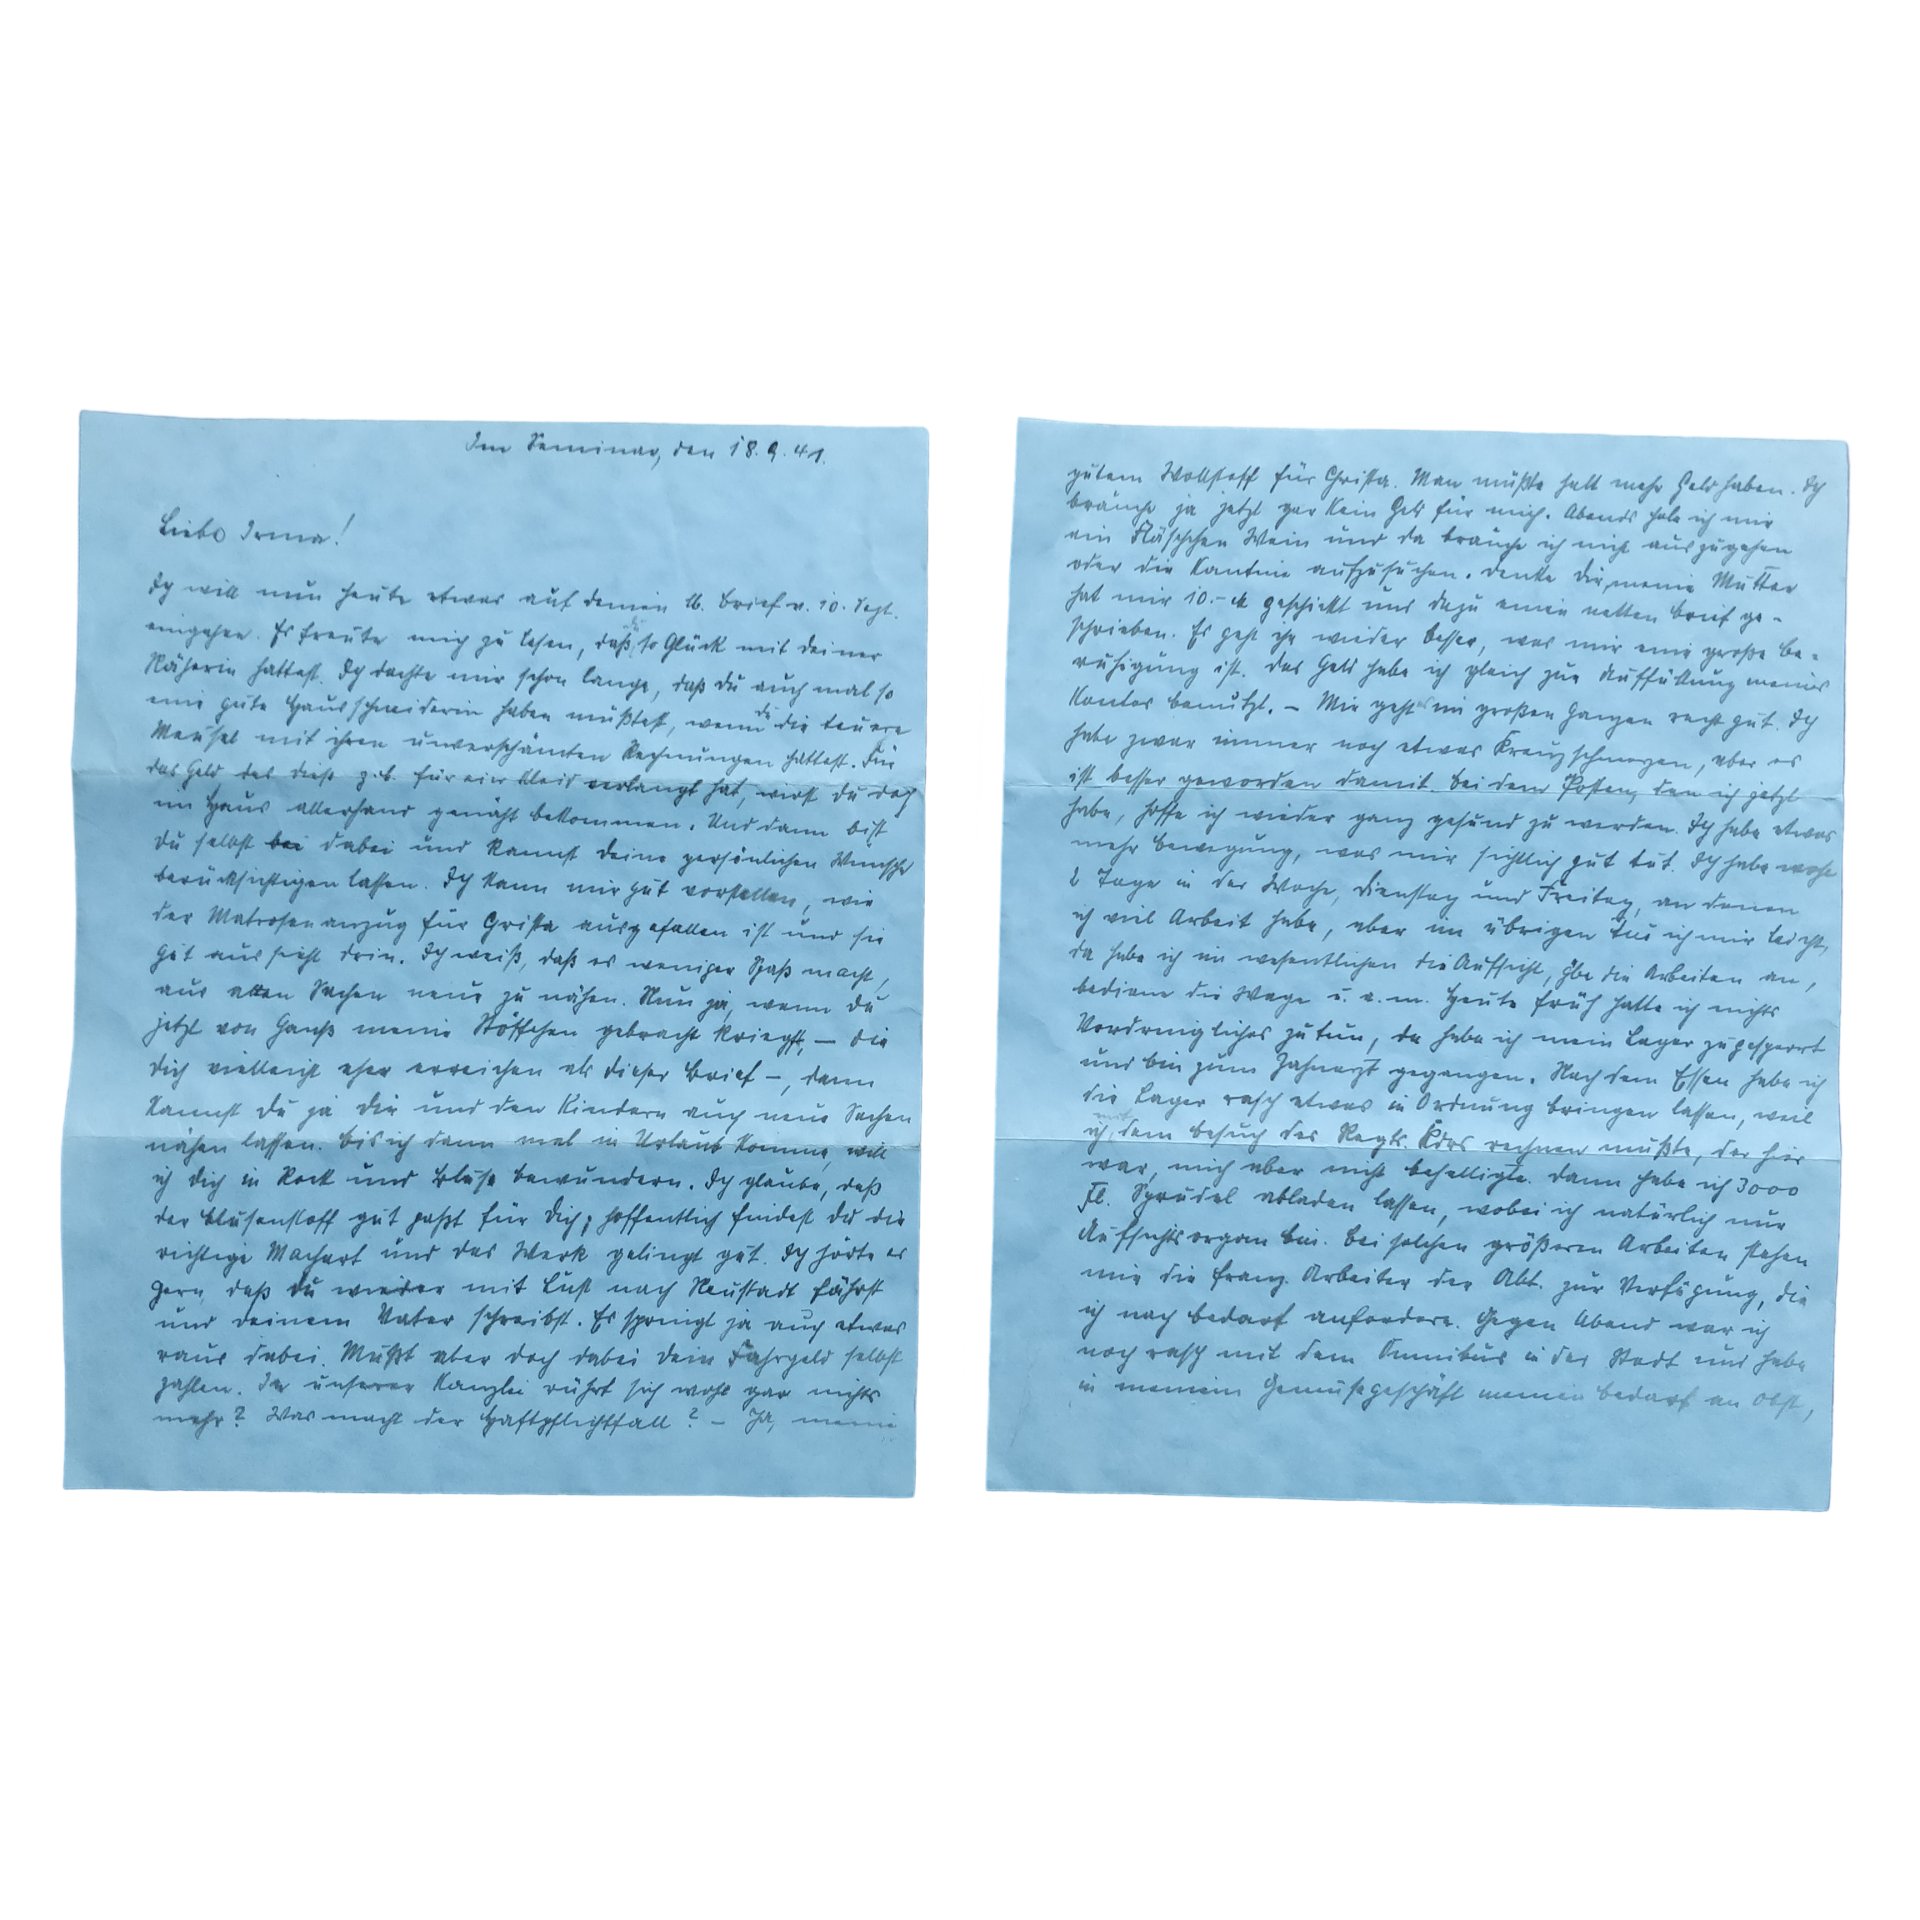 Im Seminar, den 18.9.41.
Liebe Irma!
Ich will nun heute etwas auf deinen lb. Brief v. 10. Sept.
eingehen. Es freute mich zu lesen, daß du so Glück mit deiner
Näherin hattest. Ich dachte mir schon lange, daß du auch mal so
eine gute Hausschneiderin haben müßtest, wenn du die teuere
Meusel mit ihren unverschämten Rechnungen hattest. Für
das Geld das diese z.B. für ein Kleid verlangt hat, wirst du doch
im Haus allerhand genäht bekommen. Und dann bist
du selbst bei dabei und kannst deine persönlichen Wünsche
berücksichtigen lassen. Ich kann mir gut vorstellen, wie
der Matrosenanzug für Christa ausgefallen ist und sie
gut aussieht drin. Ich weiß, daß es weniger Spaß macht,
aus alten Sachen neue zu nähen. Nun ja, wenn du
jetzt von Hauß meine Stöffchen gebracht kriegst, – die
dich vielleicht eher erreichen als dieser Brief –, dann
kannst du ja dir und den Kindern auch neue Sachen
nähen lassen. Bis ich dann mal in Urlaub komme, will
ich dich in Rock und Bluse bewundern. Ich glaube, daß
der Blusenstoff gut paßt für dich; hoffentlich findest du die
richtige Machart und das Werk gelingt gut. Ich hörte es
gern, daß du wieder mit Lust nach Neustadt fährst
und deinem Vater schreibst. Es springt ja auch etwas
raus dabei. Mußt aber doch dabei dein Fahrgeld selbst
zahlen. In unserer Kanzlei rührt sich wohl gar nichts
mehr? Was macht der Haftpflichtfall? – Ja, meine
gutem Wollstoff für Christa. Man müßte halt mehr Geld haben. Ich
brauche ja jetzt gar kein Geld für mich. Abends hole ich mir
ein Fläschchen Wein und da brauche ich nicht auszugehen
oder die Kantine aufzusuchen. Denke dir, meine Mutter
hat mir 10.- M geschickt und dazu einen netten Brief ge-
schrieben. Es geht ihr wieder besser, was mir eine große Be-
ruhigung ist. Das Geld habe ich gleich zur Auffüllung meines
Kontos benutzt. – Mir geht es im großen Ganzen recht gut. Ich
habe zwar immer noch etwas Kreuzschmerzen, aber es
ist besser geworden damit. Bei dem Posten, den ich jetzt
habe, hoffe ich wieder ganz gesund zu werden. Ich habe etwas
mehr Bewegung, was mir sichtlich gut tut. Ich habe wohl
2 Tage in der Woche, Dienstag und Freitag, an denen
ich viel Arbeit habe, aber im übrigen tue ich mir leicht,
da habe ich im wesentlichen die Aufsicht, gebe die Arbeiten an,
bediene die Wage u. a. m. Heute früh hatte ich nichts
Vordringliches zu tun, da habe ich mein Lager zugesperrt
und bin zum Zahnarzt gegangen. Nach dem Essen habe ich
die Lager rasch etwas in Ordnung bringen lassen, weil
ich mit dem Besuch des Regts. Kdrs rechnen mußte, der hier
war, mich aber nicht behelligte. Dann habe ich 3000
Fl. Sprudel abladen lassen, wobei ich natürlich nur
Aufsichtsorgan bin. Bei solchen größeren Arbeiten stehen
mir die franz. Arbeiter der Abt. zur Verfügung, die
ich nach Bedarf anfordere. Gegen Abend war ich
noch rasch mit dem Omnibus in der Stadt und habe
in meinem Gemüsegeschäft meinen Bedarf an Obst,